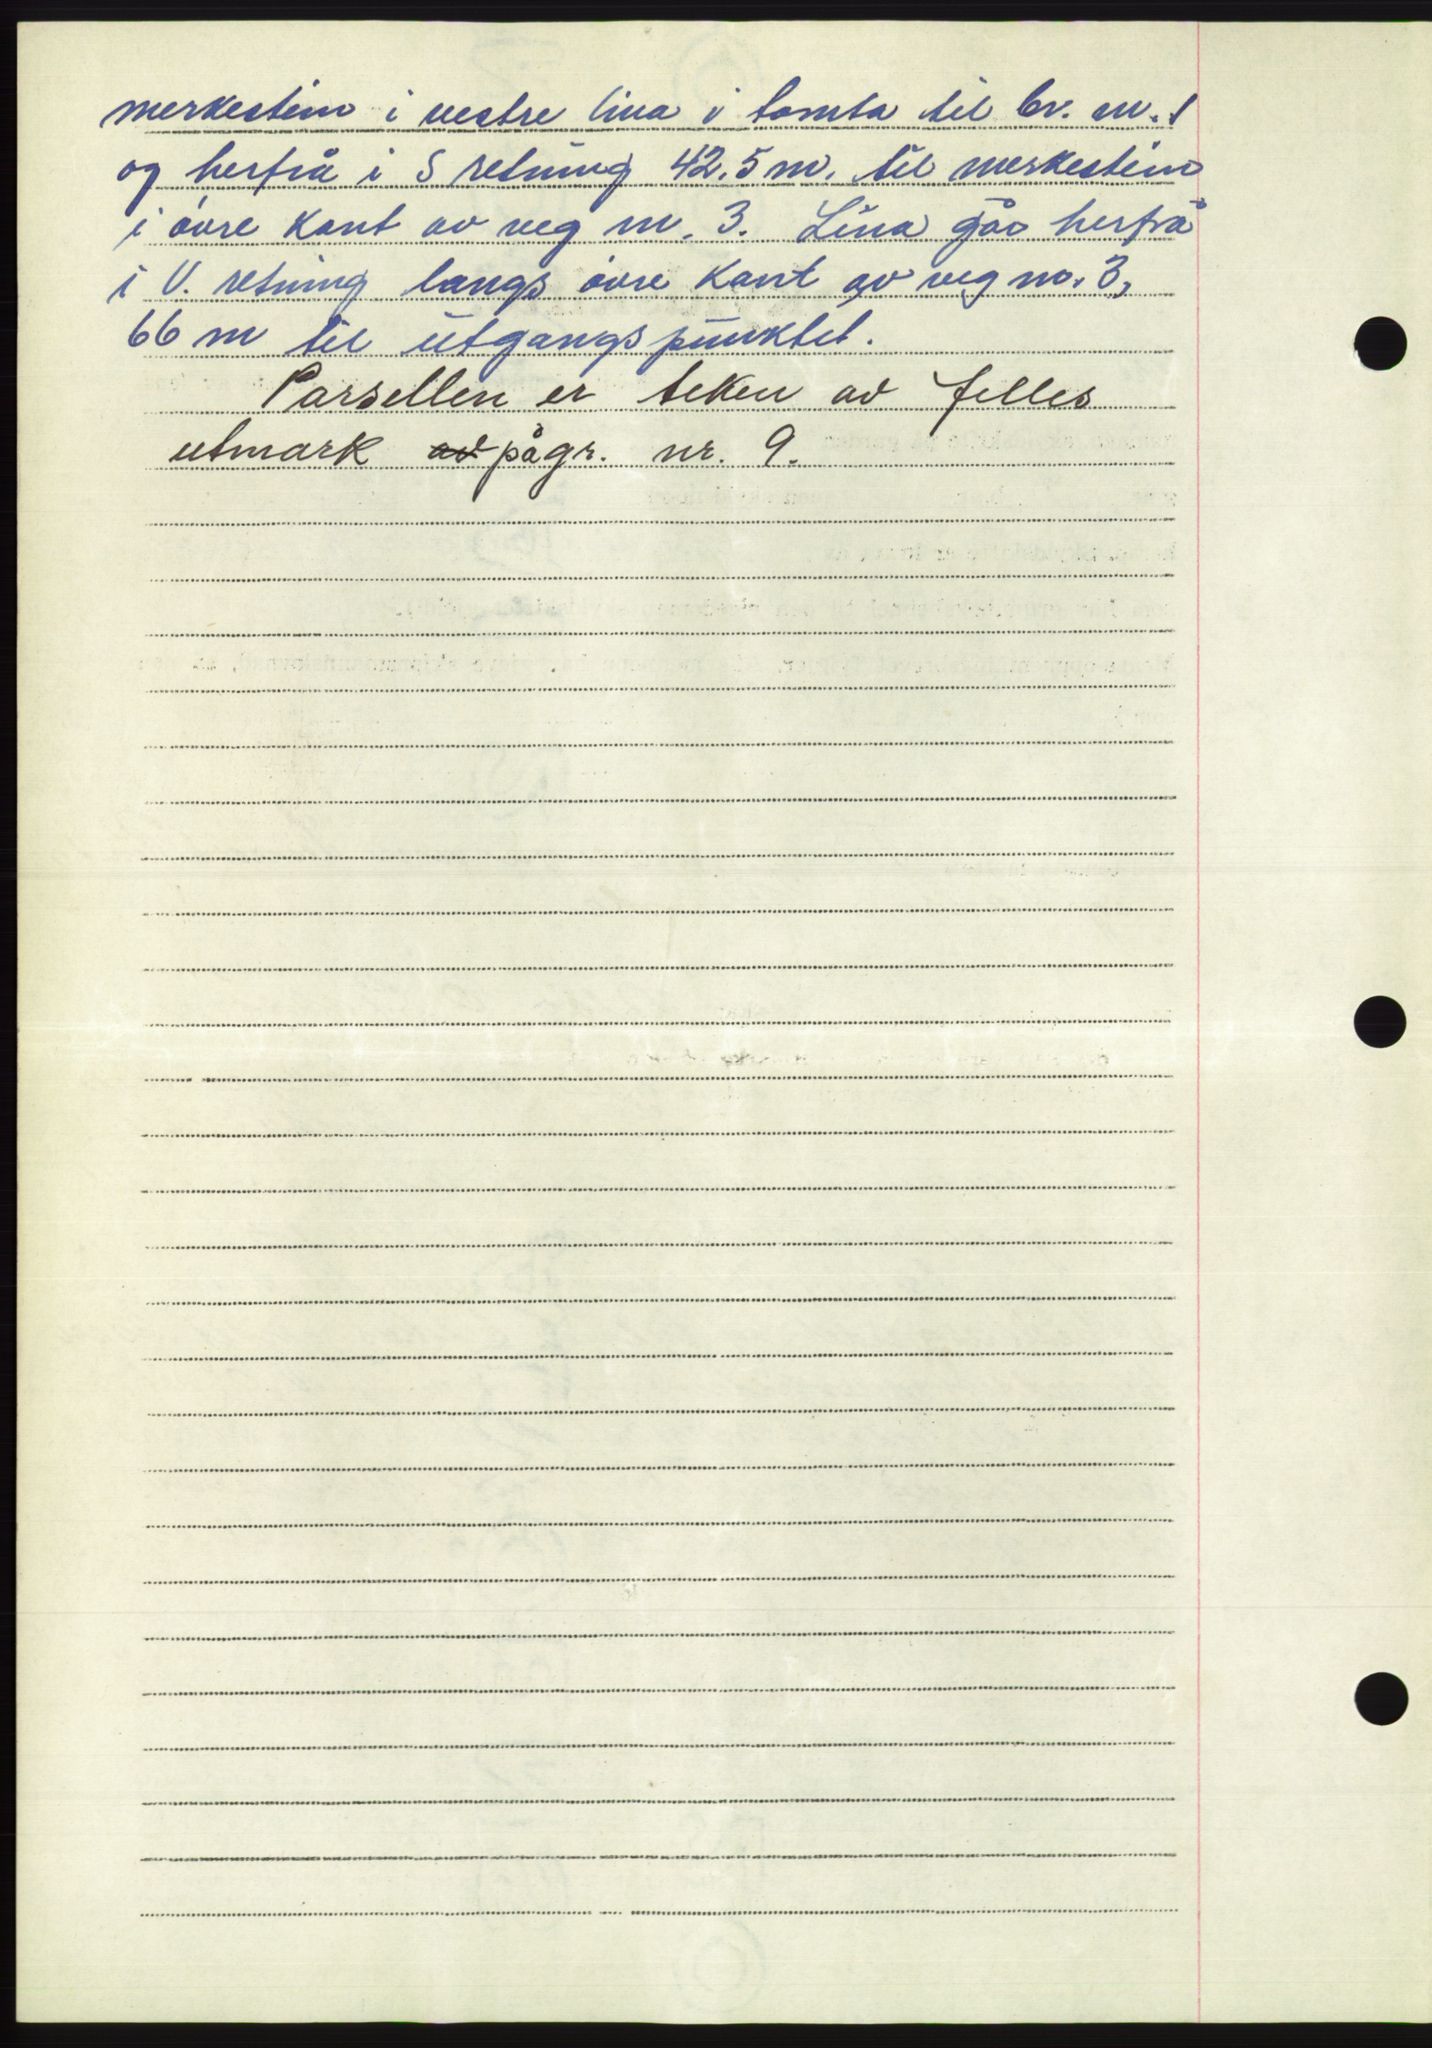 merkestein i vestre lina i tomta til br. nr. 1
og herfrå i S retning 42.5 m. til merkestein
i øvre kant av veg nr. 3. Lina går herfrå
i V. retning langs øvre kant av veg nr. 3,
66 m til utgangspunktet.
Parsellen er teken av felles
utmark av pågr. nr. 9.